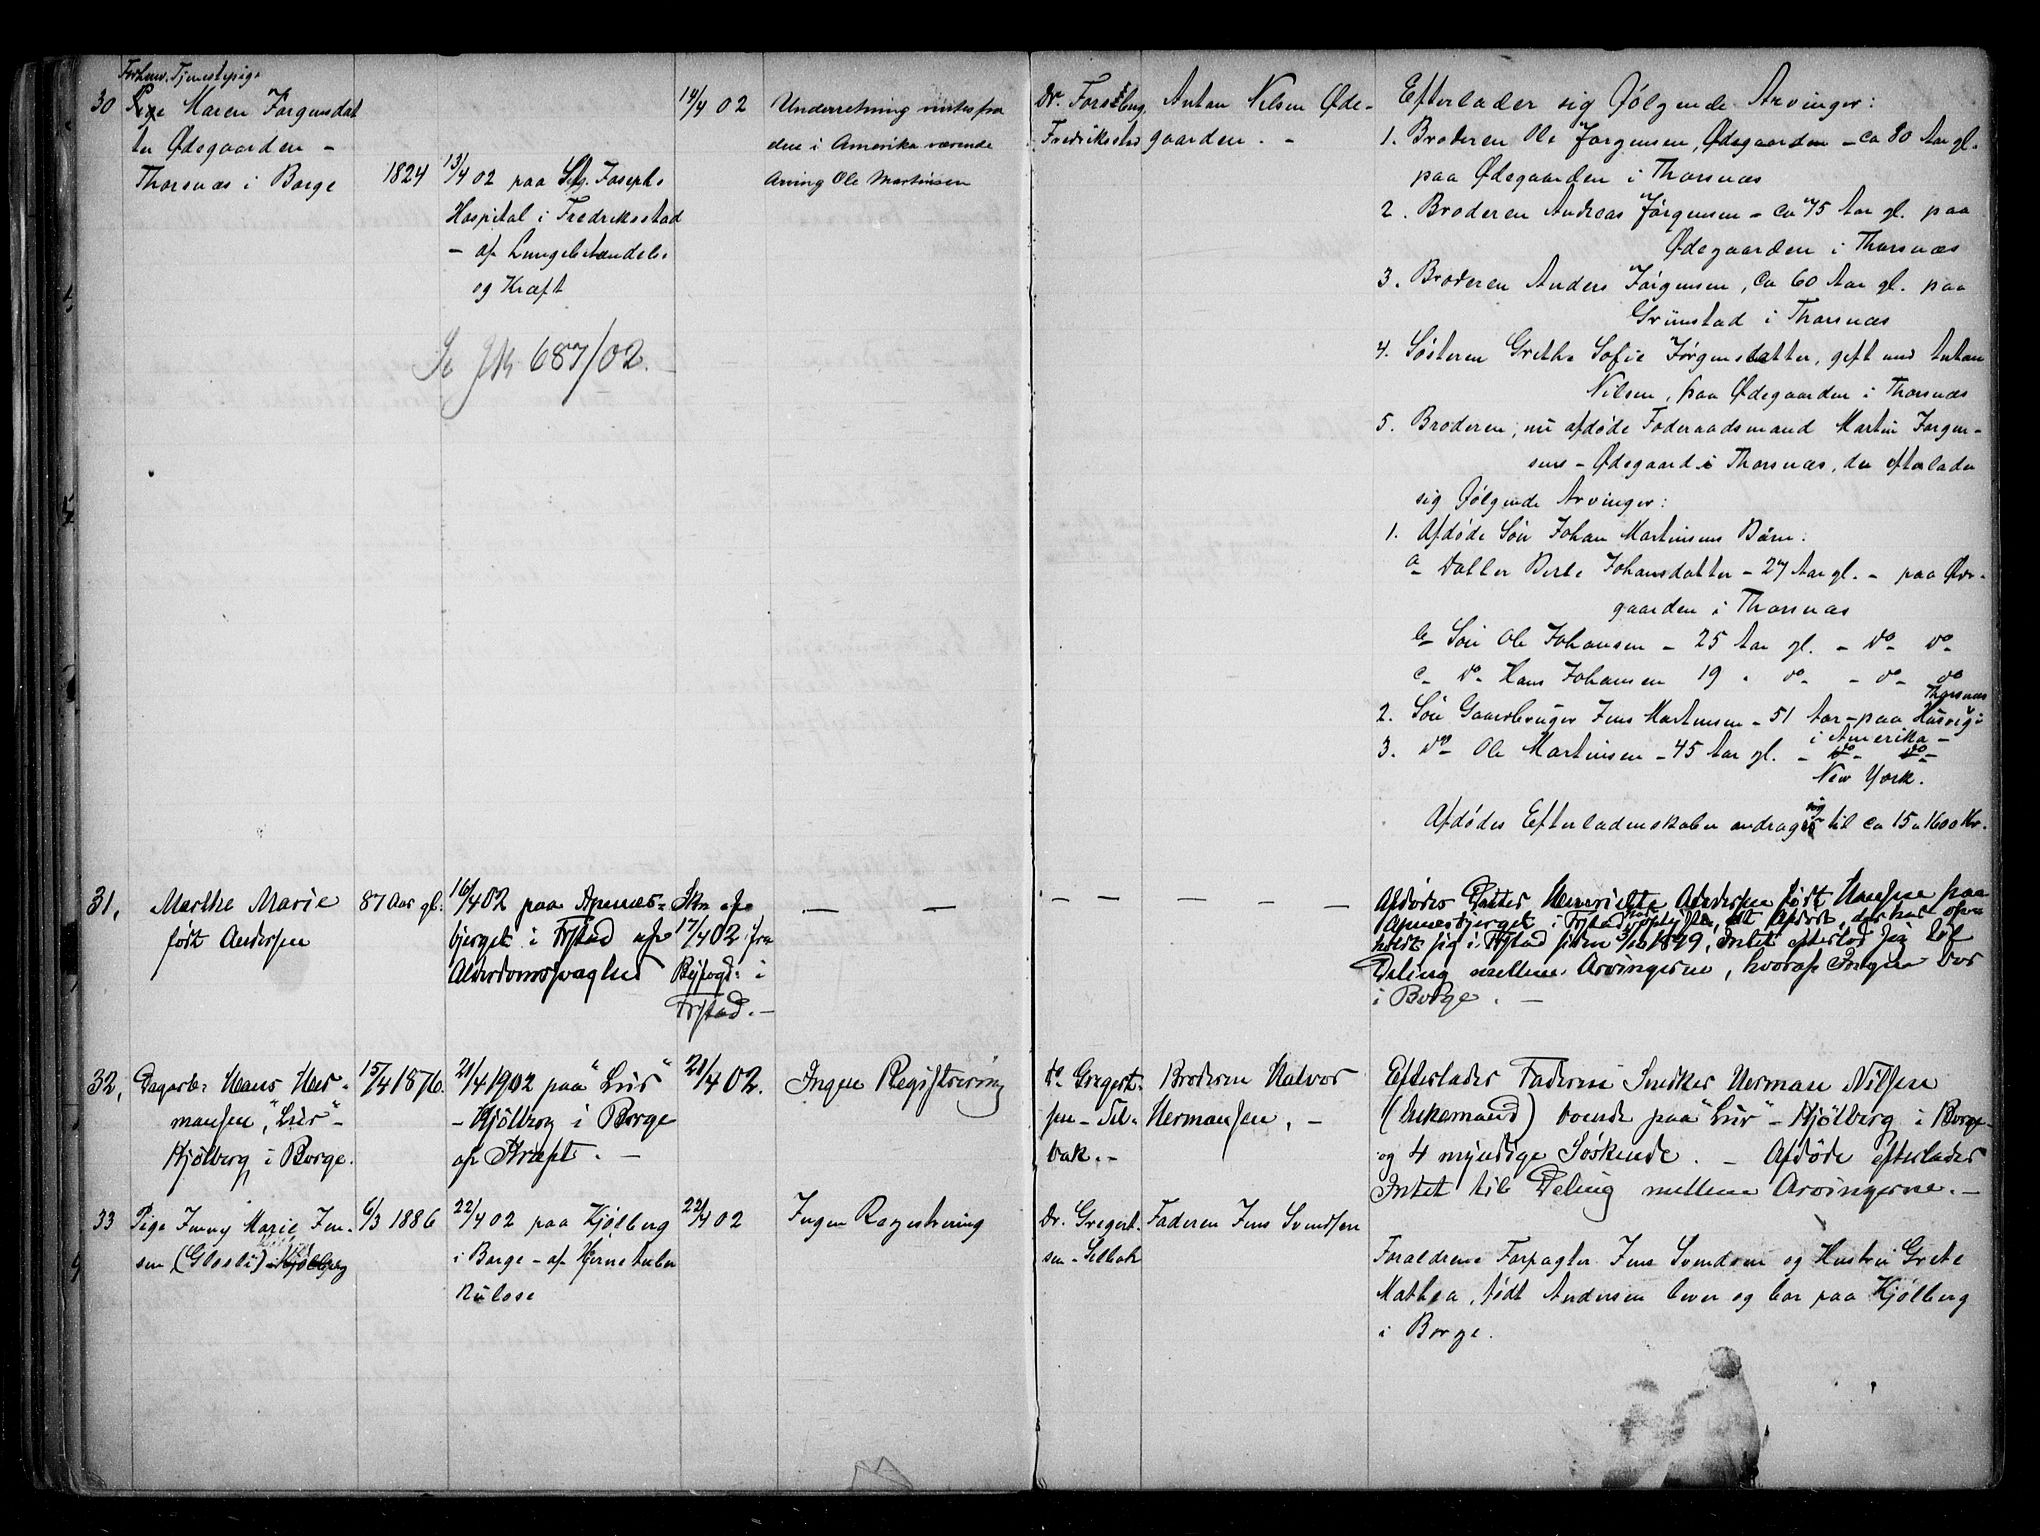 Forhenv. Tjenestepige
30 Pige Maren Jørgensdat
ter Ødegaarden -
Thorsnæs i Borge
1824
13/4 02 paa St. Josephs
Hospital i Fredriksstad
- af Lungebetændelse
og Kræft
687/02.
14/4 02
Underretning ventes fra
den i Amerika værende
Arving Ole Martinsen
Dr. Forsberg,
Fredriksstad
Anton Nilsen Øde-
gaarden. -
Efterlader sig følgende Arvinger:
1. Broderen Ole Jørgensen, Ødegaarden - ca 80 Aar gl.
paa Ødegaarden i Thorsnæs
2. Broderen Andreas Jørgensen - ca 75 Aar gl. paa
Ødegaarden i Thorsnæs
3. Broderen Anders Jørgensen, ca 60 Aar gl. paa
Grimstad i Thorsnæs
4. Søsteren Grethe Sofie Jørgensdatter, gift med Anton
Nilsen, paa Ødegaarden i Thorsnæs
5. Broderen, nu afdøde Føderaadsmand Martin Jørgen-
sens - Ødegaard i Thorsnæs, der efterlader
sig følgende Arvinger:
1. Afdøde Søn Johan Martinsens Børn:
a- Datter Berte Johansdatter - 27 Aar gl. - paa Øde-
gaarden i Thorsnæs
b- Søn Ole Johansen - 25 Aar gl. - do do
c- do Hans Johansen 19 " do - do - do
Thorsnæs
2. Søn Gaardbruger Jens Martinsen - 51 Aar - paa Husvig i
i Amerika -
3. do Ole Martinsen - 45 Aar gl. - do - do -
New York.
Afdødes Efterladenskaber andrager sig til ca 15 a 1600 Kr.
31, Marthe Marie
født Andersen
87 Aar gl.
16/4 02 paa Apenes-
bjerget i Frstad af
Alderdomssvaghed
Skr. af
17/4 02 fra
Byfogd. i
Frstad. -
Afdødes Datter Henriette Andersen født Hansen paa
Apenesbjerget i Frstad har opgivet, at Afdøde, der har op-
holdt sig i Frstad siden 1899, Intet efterlod sig til
Deling mellem Arvingerne, hvoraf Ingen bor
i Borge. -
32, Dagarb. Hans Her-
mansen, "Lur" -
Kjølberg i Borge.
15/4 1876.
21/4 1902 paa "Lur"
- Kjølberg i Borge
af Kræft. -
21/4 02.
Ingen Registrering
do Gregert-
sen - Sel-
bak. -
Broderen Halvor
Hermansen. -
Efterlader Faderen Snedker Herman Nilsen
(Enkemand) boende paa "Lur" - Kjølberg i Borge -
og 4 myndige Søskende. - Afdøde efterlader
Intet til Deling mellem Arvingerne. -
33 Pige Jenny Marie Jen-
sen, (Glosli) Kjølberg
6/3 1886
22/4 02 paa Kjølberg
i Borge - af Hjernetuber
kulose
22/4 02
Ingen Registrering
Dr. Gregert-
sen - Selbak
Faderen Jens Svendsen
Forældrene Forpagter Jens Svendsen og Hustru Grete
Mathea, født Andersen lever og bor paa Kjølberg
i Borge.